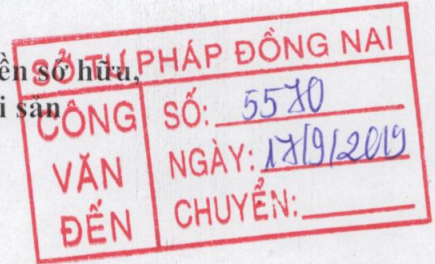 ền sở hữu,
i sản
SỞ TƯ PHÁP ĐỒNG NAI
CÔNG
VĂN
ĐẾN
SỐ: 5570
NGÀY: 17/9/2019
CHUYỂN: